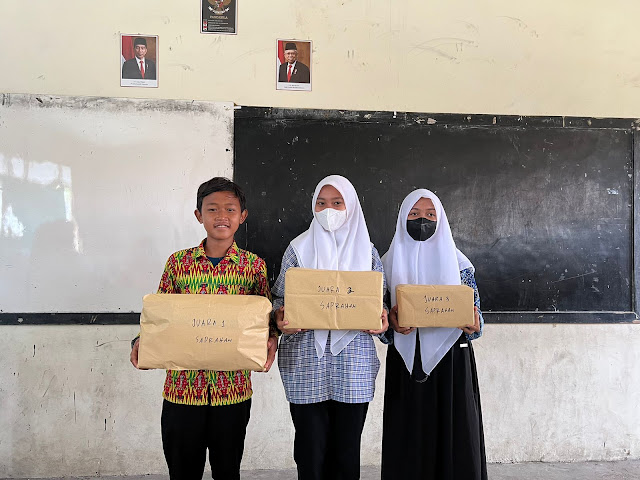 PANCASILA
JUARA 1
SAPRAHAN
JUARA 2
SAPRAHAN
JUARA 3
SAPRAHAN